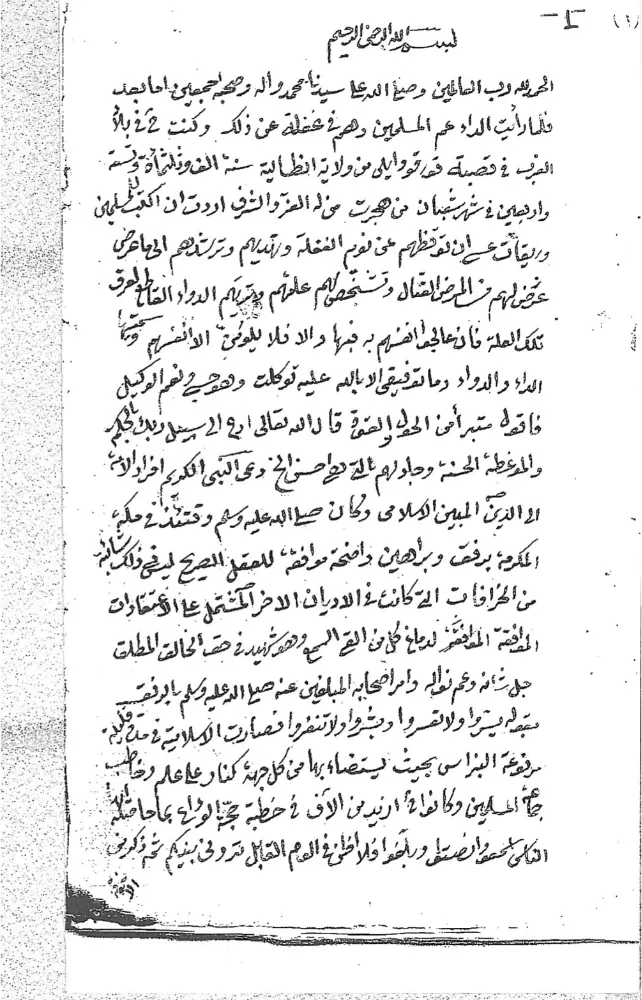 (١) ١ـ
بسم الله الرحمن الرحيم
الحمد لله رب العالمين وصلى الله على سيدنا محمد واله وصحبه اجمعين اما بعد
فلما رأيت الداء عم المسلمين وهم في غفلة عن ذلك وكنت في
في قصبة من ولاية سنة الف وثلثمائة وتسعة
واربعين في شهر شعبان من هجرت من له العز والشرف اردت ان اكتب للمسلمين
وريقات عسى ان توقظهم عن نوم الغفلة وتهديهم وترشدهم الى ما عرض
عرض لهم من المرض القتال وتشخص لهم علتهم وتريهم الدواء القاطع لعرق
تلك العلة فان عالجوا انفسهم به فبها والا فلا يلومن الا انفسهم
الداء والدواء وما توفيقي الا بالله عليه توكلت وهو حسبي ونعم الوكيل
فاقول متبرأ من الحول والقوة قال الله تعالى ادع الى سبيل ربك بالحكمة
والموعظة الحسنة وجادلهم بالتي هي احسن الخ دعى النبي الكريم افراد الامة
الى الدين المبين الاسلامي وكان صلى الله عليه وسلم وقتئذ في مكة
المكرمة برفق وبراهين واضحة موافقة للعقل الصريح ليس في ذلك شائبة
من الخرافات التي كانت في الاديان الاخر المشتمل على الاعتقادات
الموافقة لدماغ كل من القى السمع وهو شهيد في حق الخالق المطلق
جل شانه وعم نواله وامر اصحابه المبلغين عنه صلى الله عليه وسلم بالرفق
بقوله يسروا ولا تعسروا وبشروا ولا تنفروا فصارت الاسلامية في مدة قليلة
مرفوعة النبراس بحيث يستضاء بها من كل جهة كنار على علم وخاطب
جماعة المسلمين وكانوا ازيد من الاف في خطبة حجة الوداع بما حاصله ايها
الناس اسمعوا وانصتوا وبلغوا فلا اظن في العام القابل تروني بينكم ثم ذكر